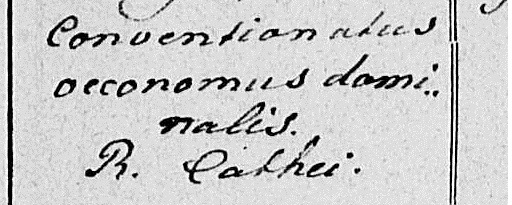 Conventionatus
oeconomus domi„
nalis.
R. Cathei.